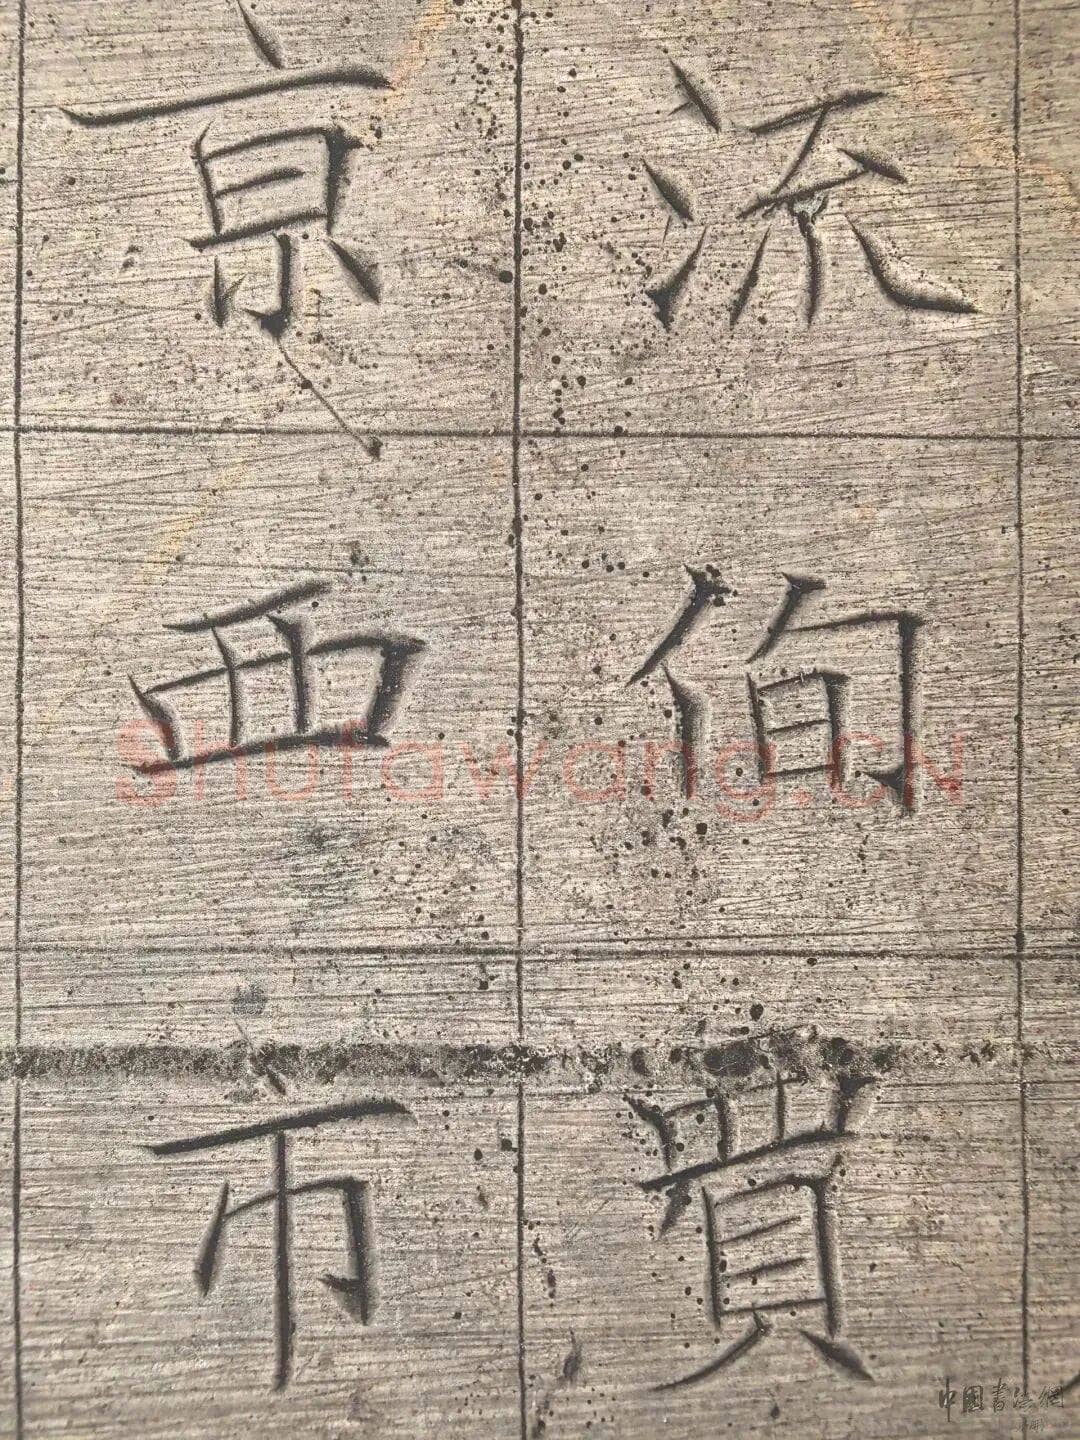 流侚買
京西市
Shufawang.CN
中國書法網